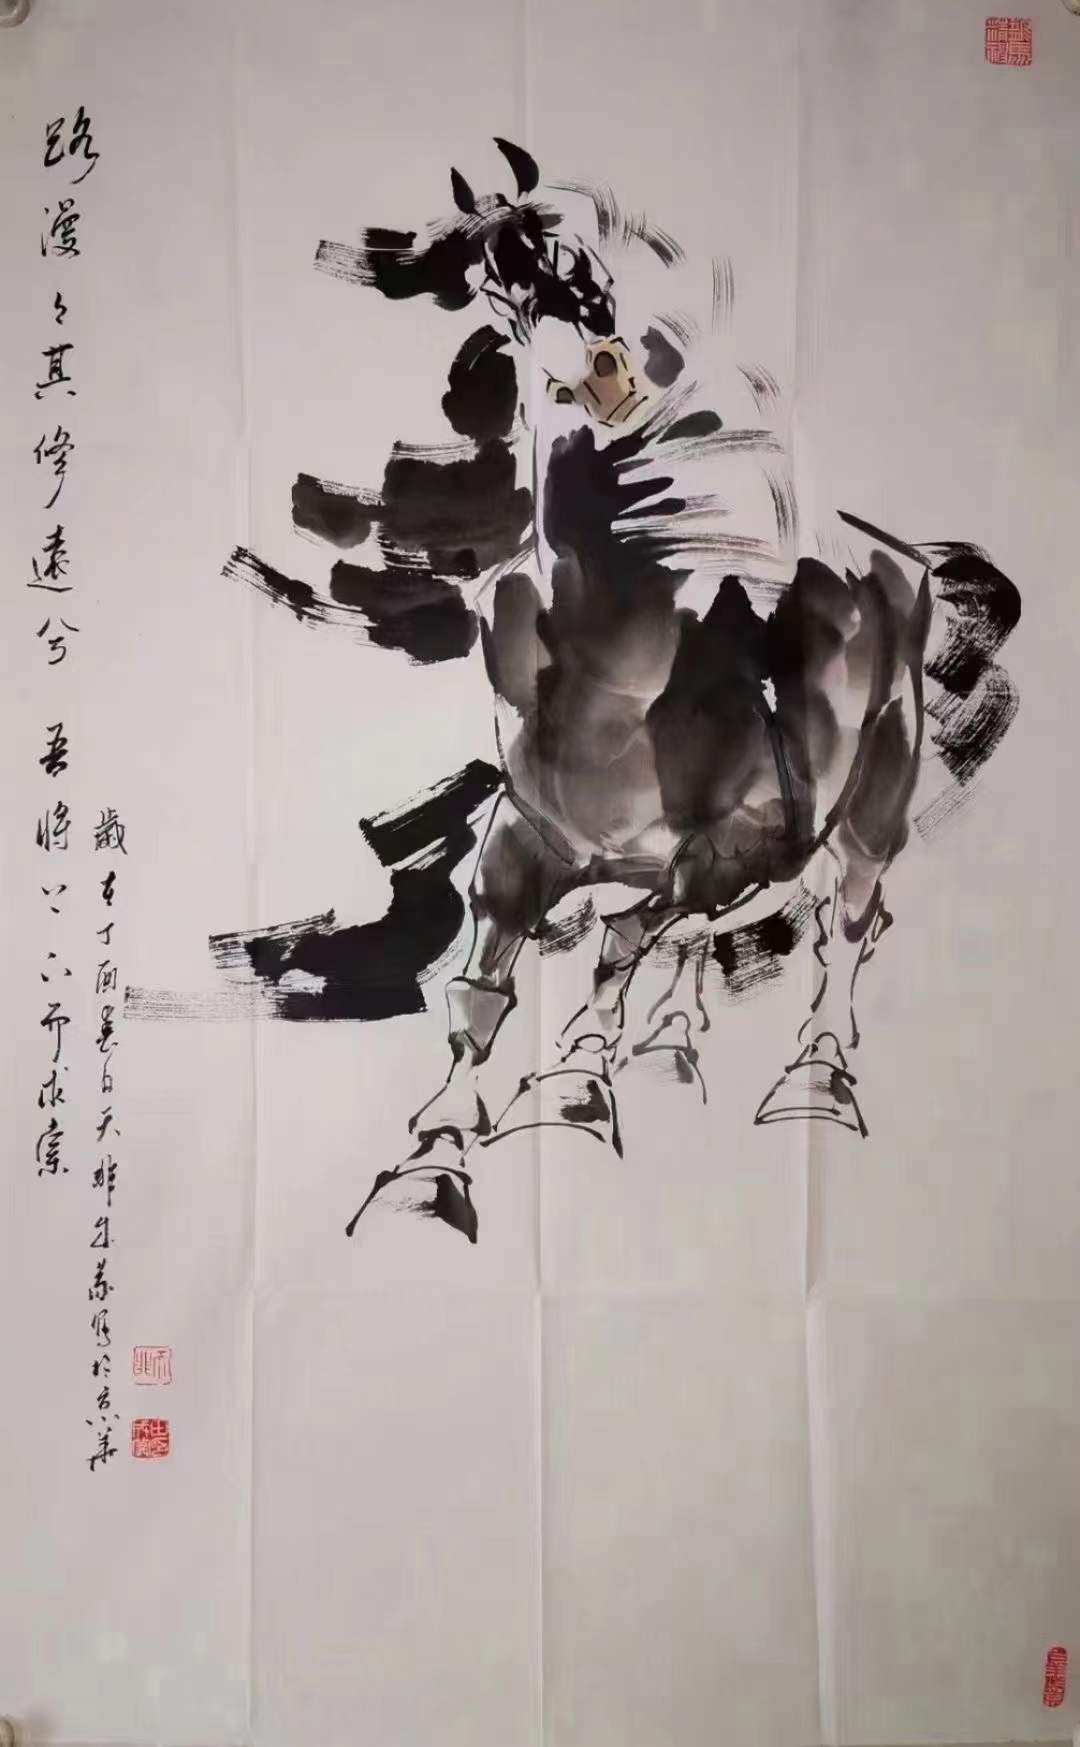 路漫々其修遠兮 吾將上下而求索
歲在丁酉春月天非朱成寫於京華